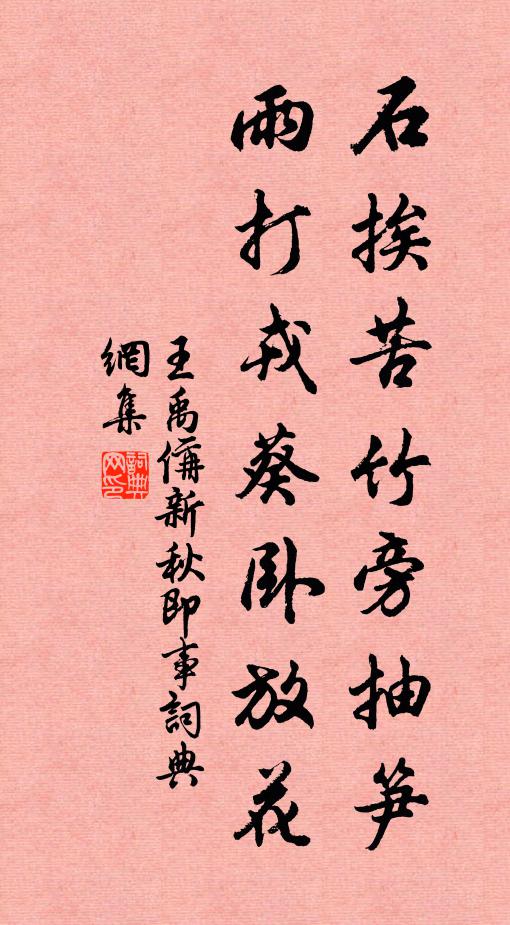 石挨苦竹旁抽笋
雨打戎葵卧放花
王禹偁新秋即事詞典
網集
詞典
网印